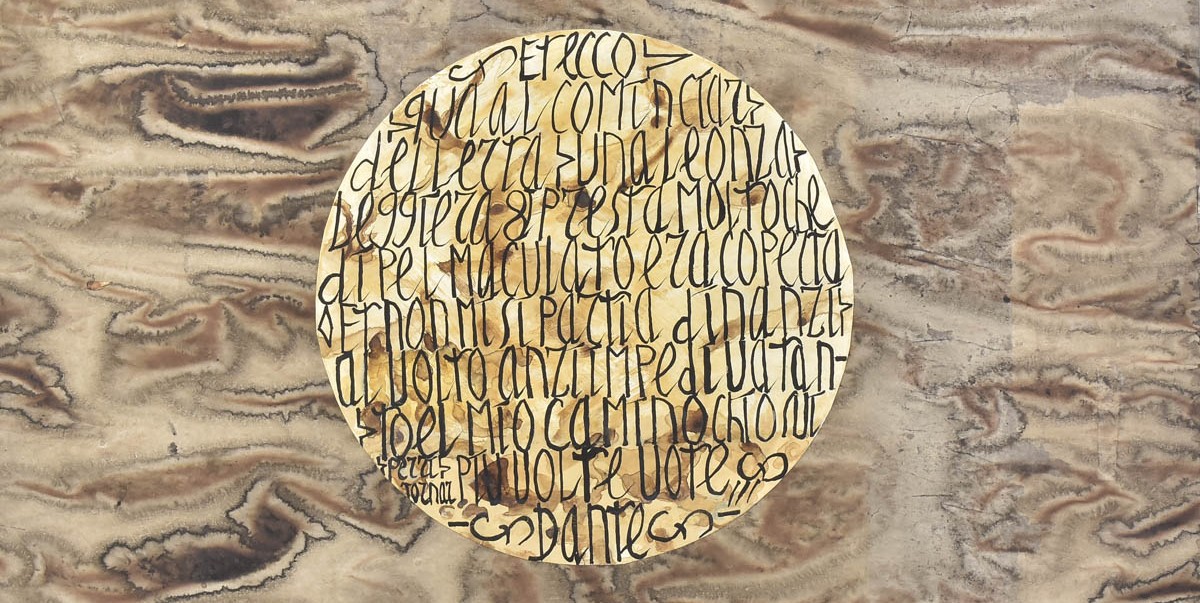 Et ecco
cominciar
dell erta > una leonza
leggiera & presta molto che
di pel maculato era coperta
et non mi si partia dinanzi
al volto anzi impediva tan-
to el mio camino chio
tornar piu volte vote
Dante